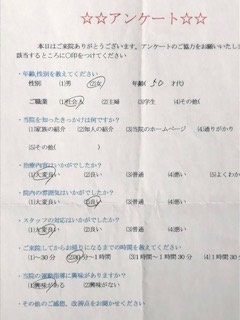 ☆☆アンケート☆☆
本日はご来院ありがとうございます。アンケートのご協力をお願いいたし
該当するところに○印をつけてください
・年齢,性別を教えてください
性別 (1)男 (2)女 年齢( 50 才代)
ご職業 (1)社会人 (2)主婦 (3)学生 (4)その他(
・当院を知ったきっかけは何ですか?
(1)家族の紹介 (2)知人の紹介 (3)当院のホームページ (4)通りがかり
(5)その他( )
・治療内容はいかがでしたか?
(1)大変良い (2)良い (3)普通 (4)悪い (5)よくわか
・院内の雰囲気はいかがでしたか?
(1)大変良い (2)良い (3)普通 (4)悪い
・スタッフの対応はいかがでしたか?
(1)大変良い (2)良い (3)普通 (4)悪い
・ご来院してからお帰りになるまでの時間を教えてください
(1)～30分 (2)30分～1時間 (3)1時間～1時間30分 (4)1時間30
・当院の運動指導に興味がありますか?
(1)興味がある (2)興味がない
・その他のご感想、改善点をお聞かせください